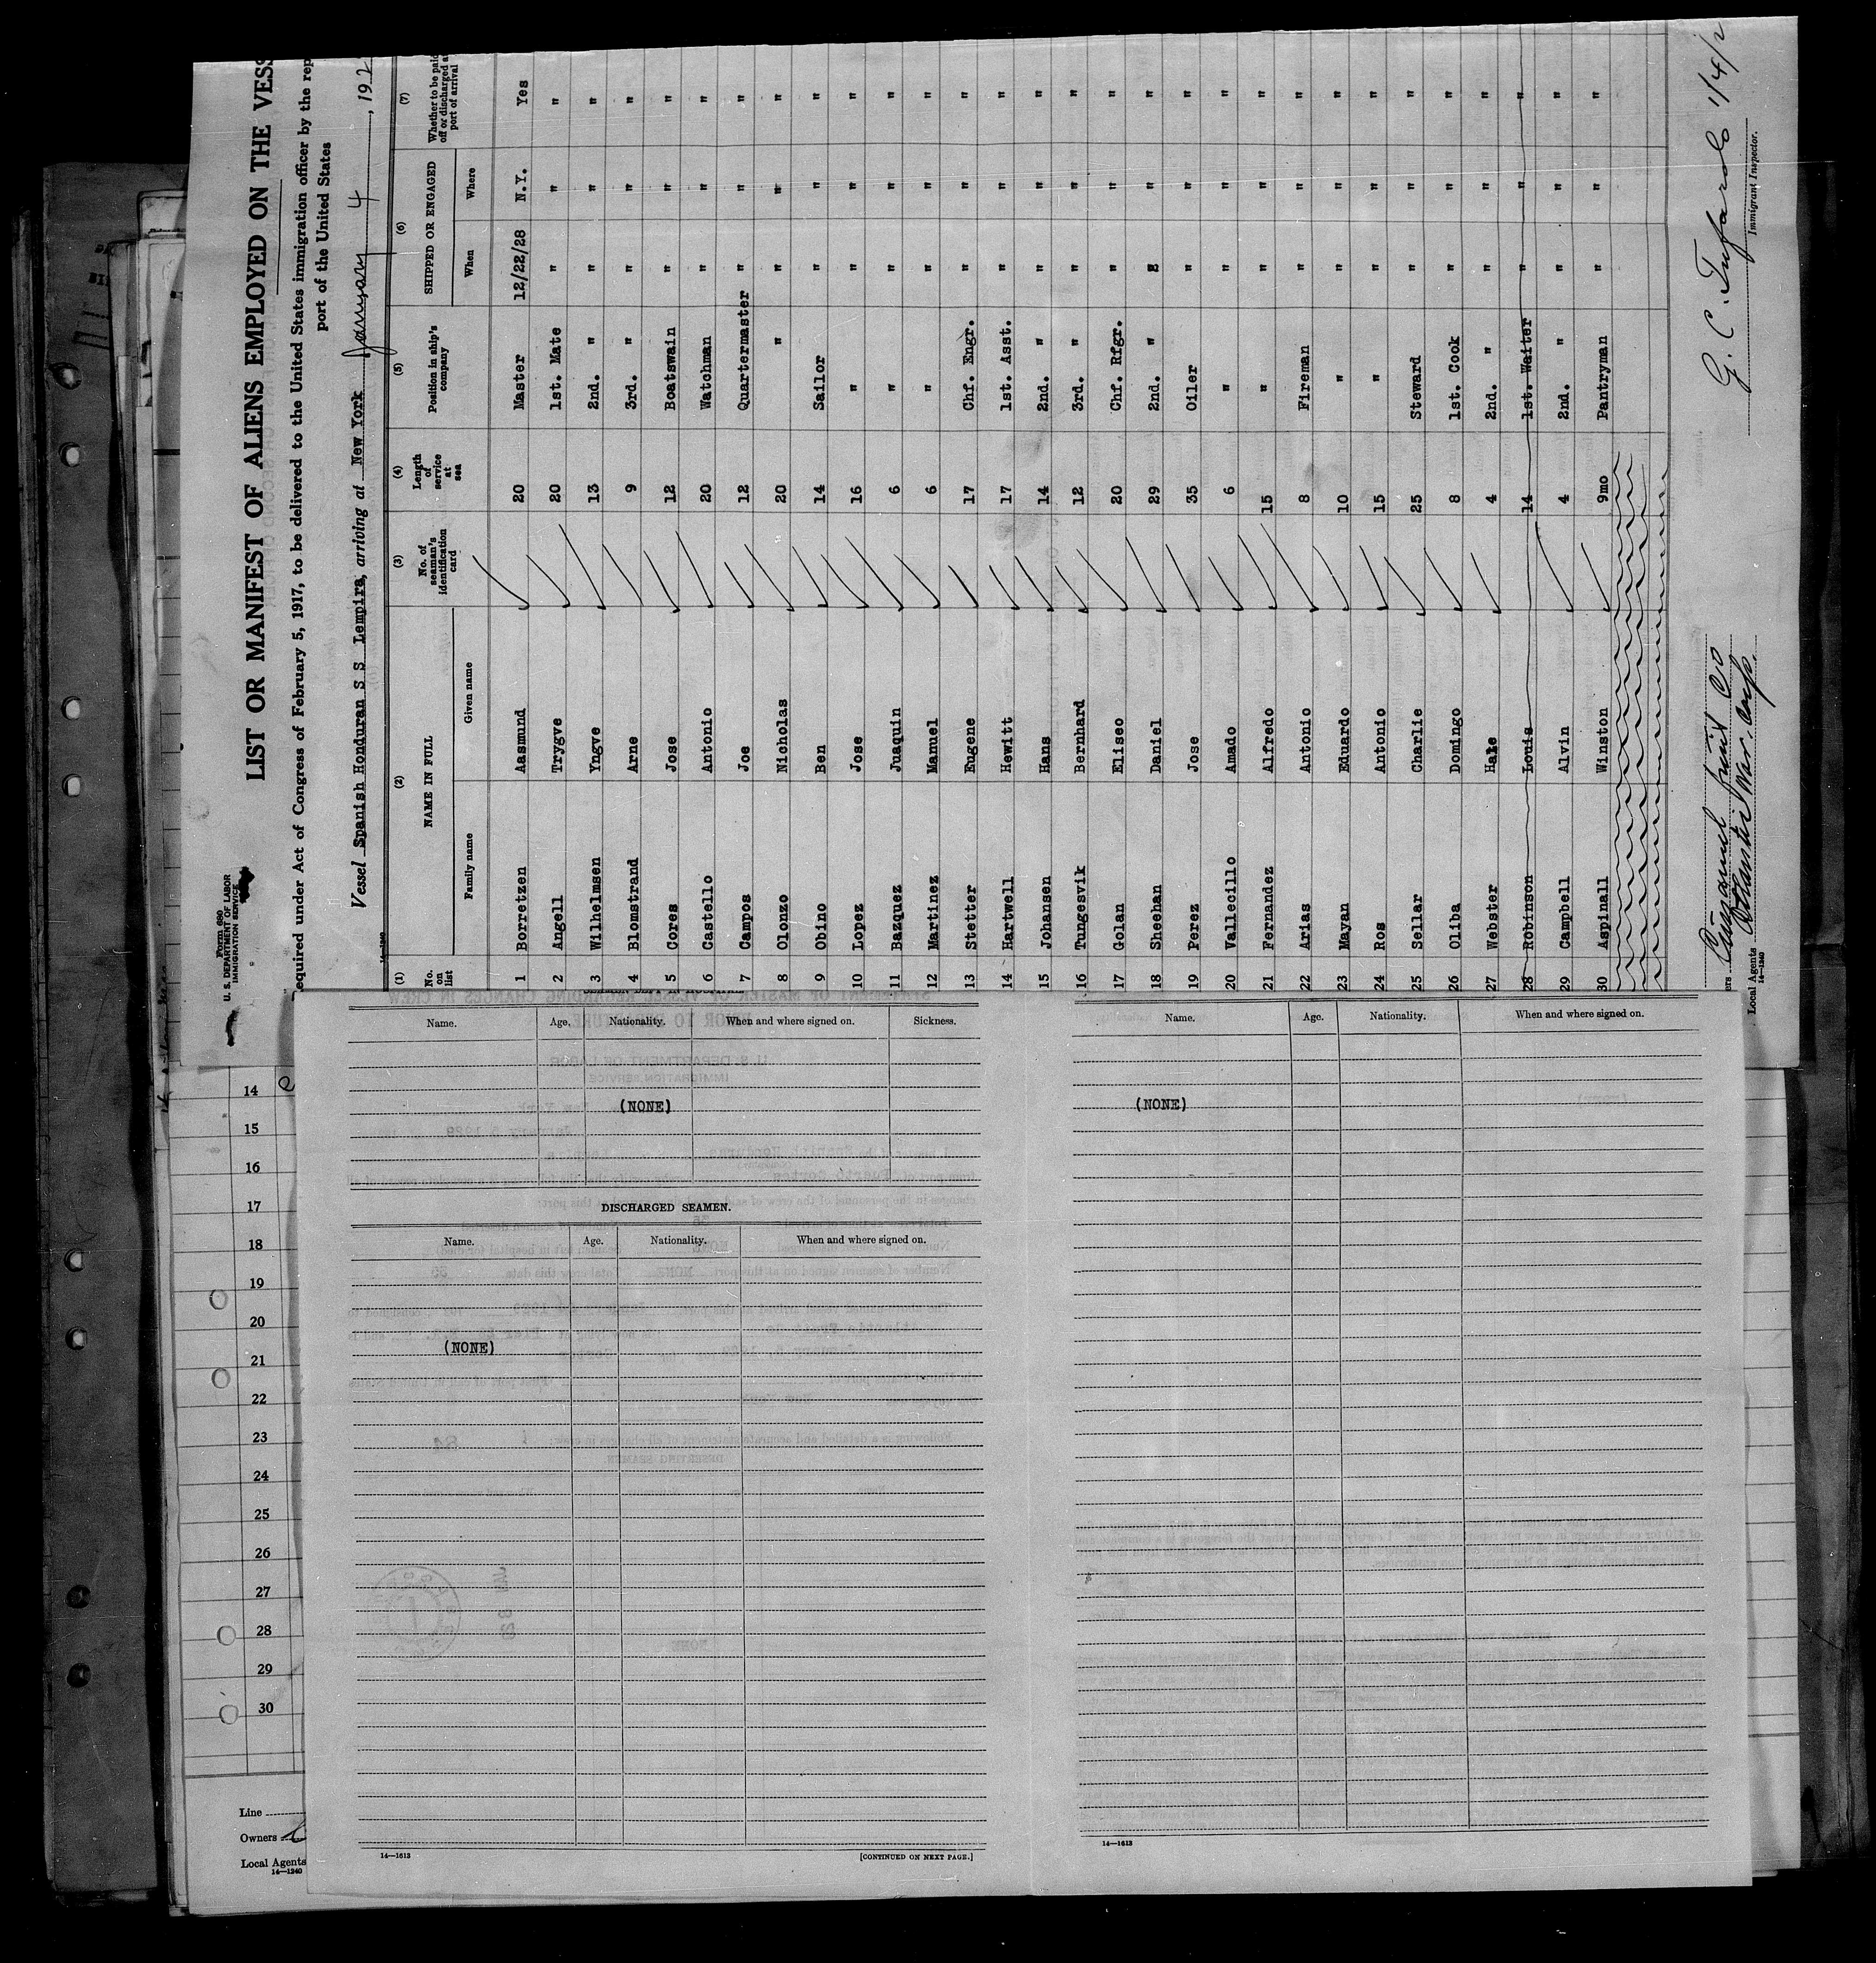 Form 680
U. S. DEPARTMENT OF LABOR
IMMIGRATION SERVICE
LIST OR MANIFEST OF ALIENS EMPLOYED ON THE VESS
equired under Act of Congress of February 5, 1917, to be delivered to the United States immigration officer by the rep
port of the United States
Vessel Spanish Honduran S S Lempira, arriving at New York January 4, 192
14-1240
(1) (2) (3) (4) (5) (6) (7)
No. on list NAME IN FULL No. of seaman's identification card Length of service at sea Position in ship's company SHIPPED OR ENGAGED Whether to be paid off or discharged at port of arrival
Family name Given name When Where
1 Borretzen Aasmund 20 Master 12/22/28 N.Y. Yes
2 Angell Trygve 20 1st. Mate " " "
3 Wilhelmsen Yngve 13 2nd. " " " "
4 Blomstrand Arne 9 3rd. " " " "
5 Cores Jose 12 Boatswain " " "
6 Castello Antonio 20 Watchman " " "
7 Campos Joe 12 Quartermaster " " "
8 Olonzo Nicholas 20 " " " "
9 Obino Ben 14 Sailor " " "
10 Lopez Jose 16 " " " "
11 Bazquez Juaquin 6 " " " "
12 Martinez Manuel 6 " " " "
13 Stetter Eugene 17 Chf. Engr. " " "
14 Hartwell Hewitt 17 1st. Asst. " " "
15 Johansen Hans 14 2nd. " " " "
16 Tungesvik Bernhard 12 3rd. " " " "
17 Golan Eliseo 20 Chf. Rfgr. " " "
18 Sheehan Daniel 29 2nd. " " " "
19 Perez Jose 35 Oiler " " "
20 Vallecillo Amado 6 " " " "
21 Fernandez Alfredo 15 " " " "
22 Arias Antonio 8 Fireman " " "
23 Mayan Eduardo 10 " " " "
24 Ros Antonio 15 " " " "
25 Sellar Charlie 25 Steward " " "
26 Oliba Domingo 8 1st. Cook " " "
27 Webster Hale 4 2nd. " " " "
28 Robinson Louis 14 1st. Waiter " " "
29 Campbell Alvin 4 2nd. " " " "
30 Aspinall Winston 9mo Pantryman " " "
ers
Local Agents
14-1240
G. C. Tufarolo 1/4/2
Immigrant Inspector.
Name. Age. Nationality. When and where signed on. Sickness.
(NONE)
DISCHARGED SEAMEN.
Name. Age. Nationality. When and where signed on.
(NONE)
14—1613
[CONTINUED ON NEXT PAGE.]
Name. Age. Nationality. When and where signed on.
(NONE)
14—1613
14
15
16
17
18
19
20
21
22
23
24
25
26
27
28
29
30
Line
Owners
Local Agents
14—1240